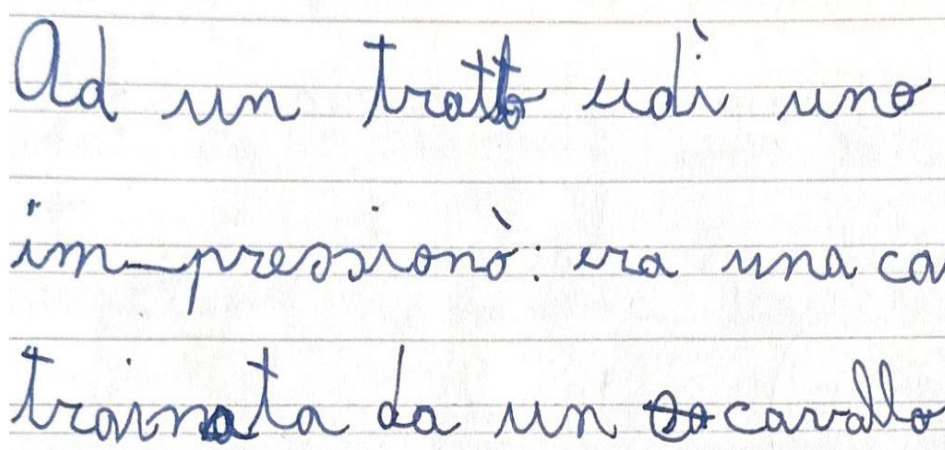 Ad un tratto udì uno
im_pressionò: era una ca
trainata da un cavallo